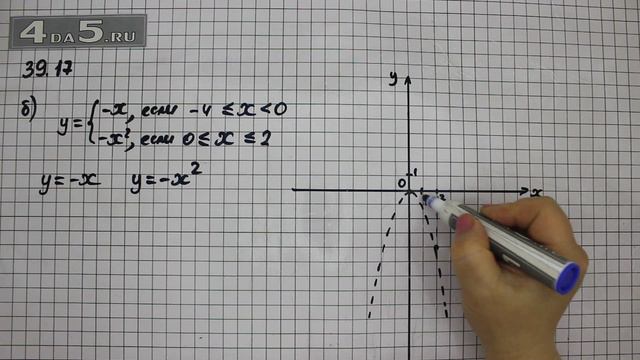 4DA5.RU
39.17
б) y = { -x, если -4 ≤ x < 0
-x², если 0 ≤ x ≤ 2
y = -x y = -x²
y
1
0
2
x